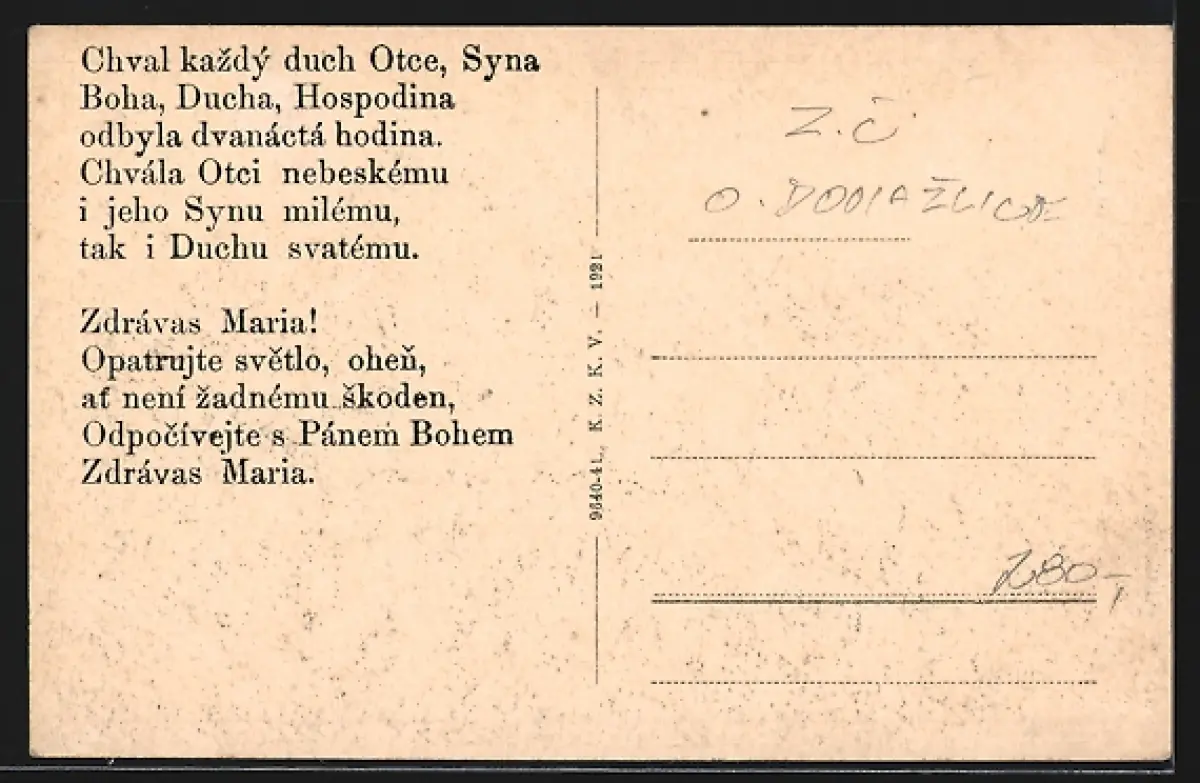 Chval každý duch Otce, Syna
Boha, Ducha, Hospodina
odbyla dvanáctá hodina.
Chvála Otci nebeskému
i jeho Synu milému,
tak i Duchu svatému.
Zdrávas Maria!
Opatrujte světlo, oheň,
ať není žadnému škoden,
Odpočívejte s Pánem Bohem
Zdrávas Maria.
9640-41. K. Z. K. V. — 1921
Z.Č
O. DOMAŽLICE
280,-